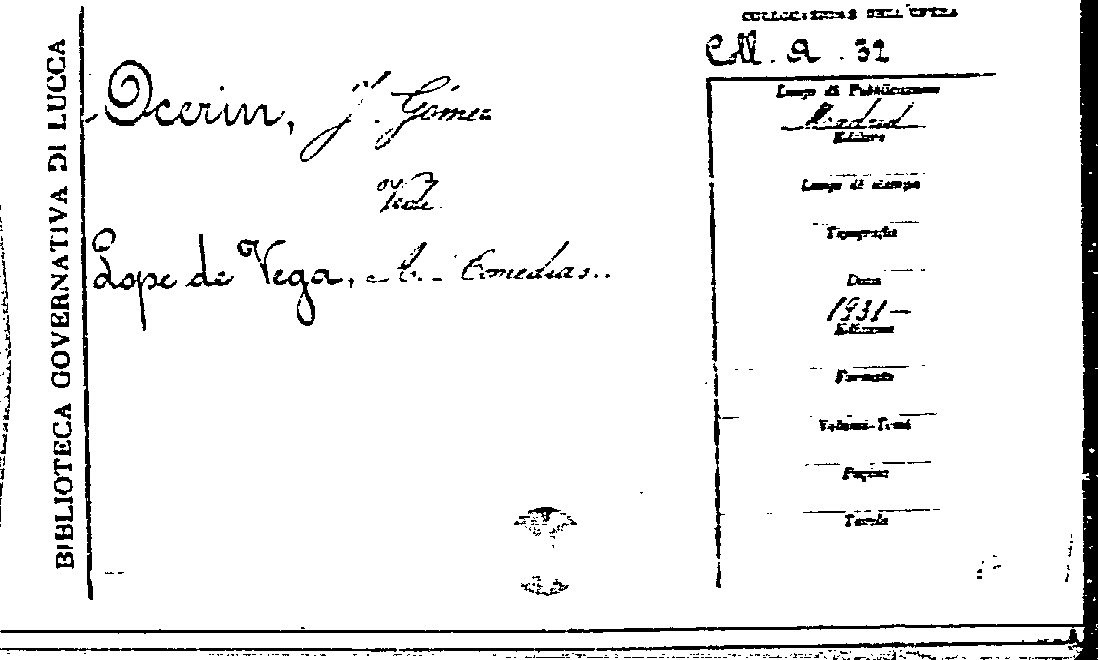 BIBLIOTECA GOVERNATIVA DI LUCCA
Ocerin, J. Gómez
Vede
Lope de Vega, Comedias..
COLLOCAZIONE DELL'OPERA
CM. A. 32
Luogo di Pubblicazione
Madrid
Editore
Luogo di stampa
Tipografia
Data
1931-
Edizione
Formato
Volumi-Tomi
Pagine
Tavole